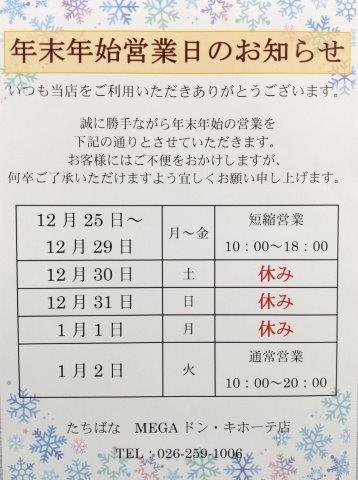 年末年始営業日のお知らせ
いつも当店をご利用いただきありがとうございます。
誠に勝手ながら年末年始の営業を
下記の通りとさせていただきます。
お客様にはご不便をおかけしますが、
何卒ご了承いただけますよう宜しくお願い申し上げます。
12月25日～
12月29日 月～金 短縮営業
10：00～18：00
12月30日 土 休み
12月31日 日 休み
1月1日 月 休み
1月2日 火 通常営業
10：00～20：00
たちばな　MEGAドン・キホーテ店
TEL：026-259-1006